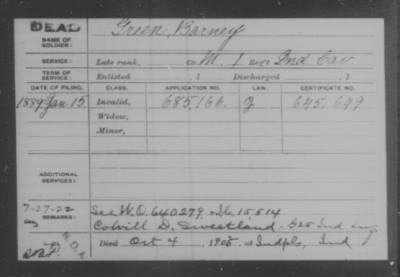 DEAD
Green, Barney
NAME OF
SOLDIER:
SERVICE: Late rank, Co. M, 1 Reg't Ind Cav.
TERM OF
SERVICE: Enlisted , 1 Discharged , 1
DATE OF FILING. CLASS. APPLICATION NO. LAW. CERTIFICATE NO.
1889 Jan 15 Invalid, 685,166. 645,649
Widow,
Minor,
ADDITIONAL
SERVICES:
7-27-22 See W.O. 640279
REMARKS: Colvill D. Sweetland. Ind
Died Oct 4, 1905, at Indpls, Ind